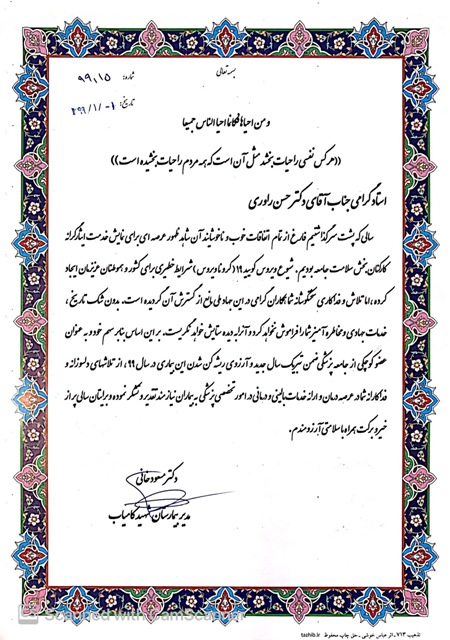 بسمه تعالی
شماره: ۹۹,۱۵
تاریخ: ۹۹/۱/۰۶
و من احیاها فکانما احیا الناس جمیعا
((هر کس نفسی را حیات بخشد مثل آن است که همه مردم را حیات بخشیده است))
استاد گرامی جناب آقای دکتر حسن راوری
سالی که پشت سر گذاشتیم فارغ از تمام اتفاقات خوب و ناخوشایند آن شاهد ظهور عرصه ای برای نمایش خدمت ایثارگرانه
کارکنان بخش سلامت جامعه بودیم. شیوع ویروس کووید ۱۹ (کرونا ویروس) شرایط خطیری برای کشور و هموطنان عزیزمان ایجاد
کرده، اما تلاش و فداکاری سختکوشانه شما همکاران گرامی در این جهاد ملی مانع از گسترش آن گردیده است. بدون شک تاریخ،
خدمات جهادی و مخاطره آمیز شما را فراموش نخواهد کرد و آنرا به دیده ستایش خواهد نگریست. بر این اساس بنا بر رسم خود و به عنوان
عضو کوچکی از جامعه پزشکی ضمن تبریک سال جدید و آرزوی ریشه کن شدن این بیماری در سال ۹۹، از تلاشهای دلسوزانه و
فداکارانه شما در عرصه درمان و ارائه خدمات بالینی و درمانی در امور تخصصی پزشکی به بیماران نیازمند تقدیر و تشکر نموده و برایتان سالی پر از
خیر و برکت همراه با سلامتی آرزومندم.
دکتر مسعود خانی
مدیر بیمارستان شهید کامیاب
Scanned with CamScanner
تذهیب ۷۱۳- اثر عباس خوشی - حق چاپ محفوظ tazhib.ir